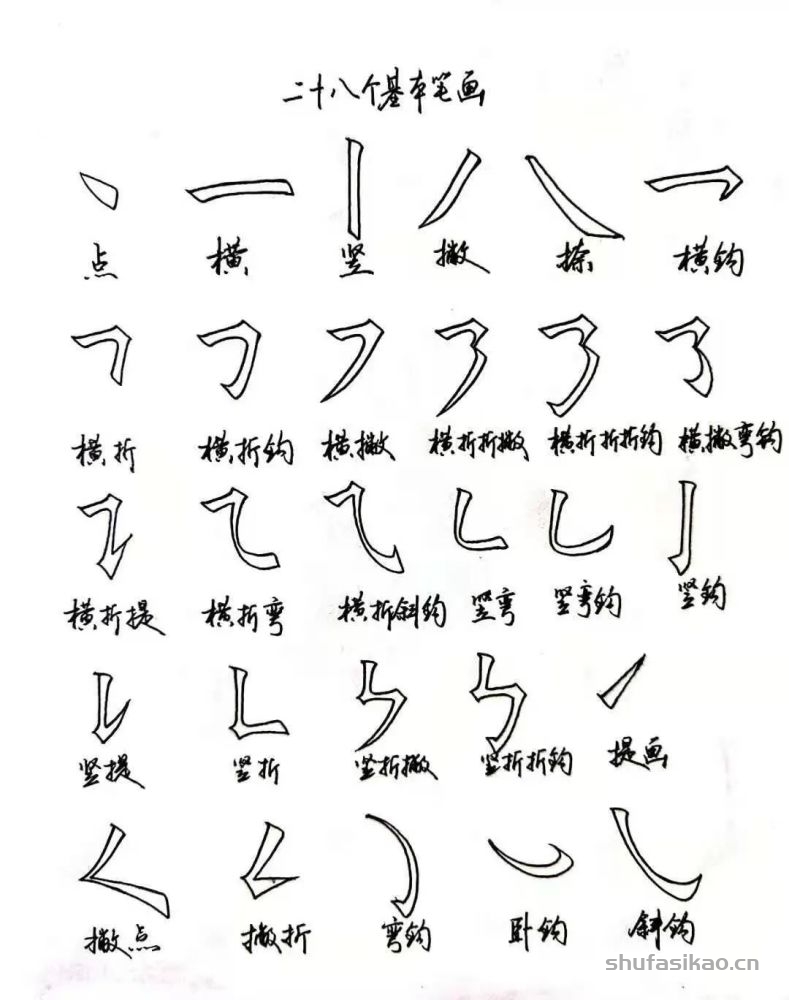 二十八个基本笔画
点 横 竖 撇 捺 横钩
横折 横折钩 横撇 横折折撇 横折折折钩 横撇弯钩
横折提 横折弯 横折斜钩 竖弯 竖弯钩 竖钩
竖提 竖折 竖折撇 竖折折钩 提画
撇点 撇折 弯钩 卧钩 斜钩
shufasikao.cn